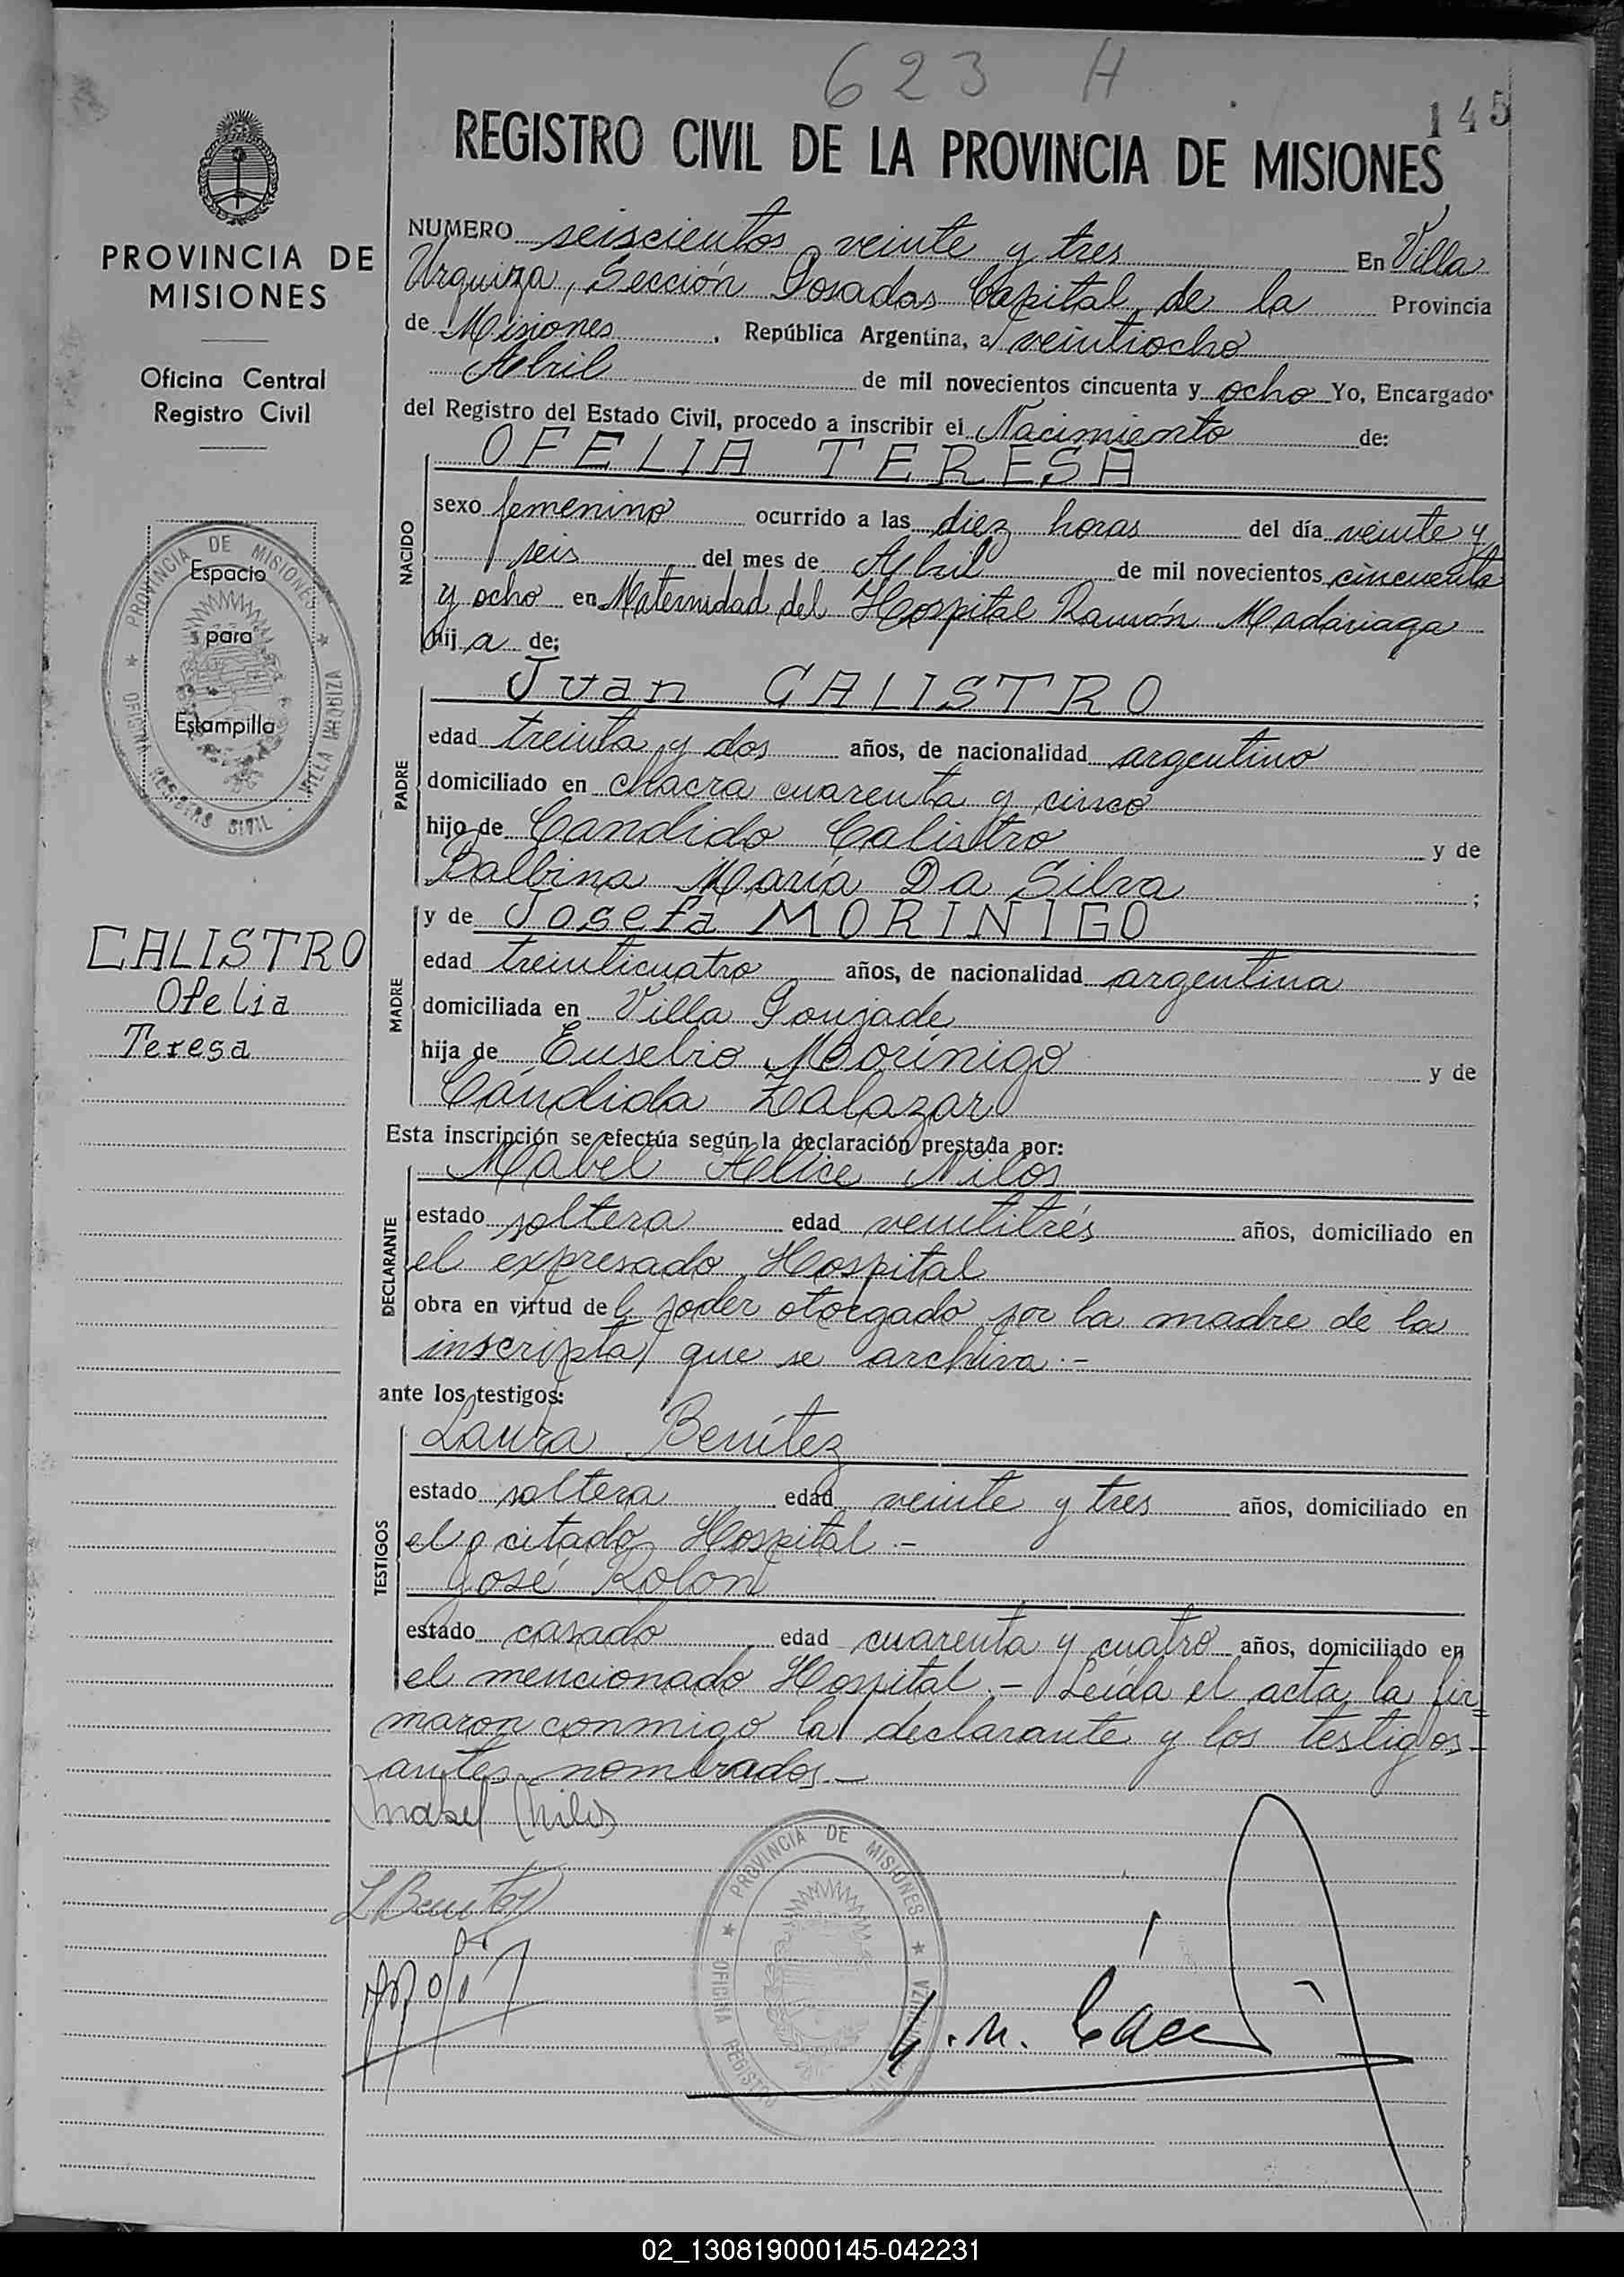 623 H
145
REGISTRO CIVIL DE LA PROVINCIA DE MISIONES
PROVINCIA DE
MISIONES
Oficina Central
Registro Civil
PROVINCIA DE MISIONES
Espacio
para
Estampilla
OFICINA REGISTRO CIVIL - VILLA URQUIZA
CALISTRO
Ofelia
Teresa
NUMERO seiscientos veinte y tres En Villa
Urquiza, Sección Posadas Capital de la Provincia
de Misiones, República Argentina, a veintiocho
Abril de mil novecientos cincuenta y ocho Yo, Encargado
del Registro del Estado Civil, procedo a inscribir el Nacimiento de:
OFELIA TERESA
NACIDO
sexo femenino ocurrido a las diez horas del día veinte y
seis del mes de Abril de mil novecientos cincuenta
y ocho en Maternidad del Hospital Ramón Madariaga
hija de:
Juan CALISTRO
PADRE
edad treinta y dos años, de nacionalidad argentino
domiciliado en chacra cuarenta y cinco
hijo de Candido Calistro y de
Balbina María Da Silva ;
y de Josefa MORINIGO
MADRE
edad treinticuatro años, de nacionalidad argentina
domiciliada en Villa Poujade
hija de Eusebio Morínigo y de
Cándida Zalazar
Esta inscripción se efectúa según la declaración prestada por:
Mabel Alice Nilos
DECLARANTE
estado soltera edad veintitrés años, domiciliado en
el expresado Hospital
obra en virtud del poder otorgado por la madre de la
inscripta que se archiva.-
ante los testigos:
Laura Benítez
TESTIGOS
estado soltera edad veinte y tres años, domiciliado en
el citado Hospital.-
José Rolón
estado casado edad cuarenta y cuatro años, domiciliado en
el mencionado Hospital.- Leída el acta, la fir=
maron conmigo la declarante y los testigos-
antes nombrados.-
Mabel Nilos
L Benítez
PROVINCIA DE MISIONES
OFICINA REGISTRO
02_130819000145-042231